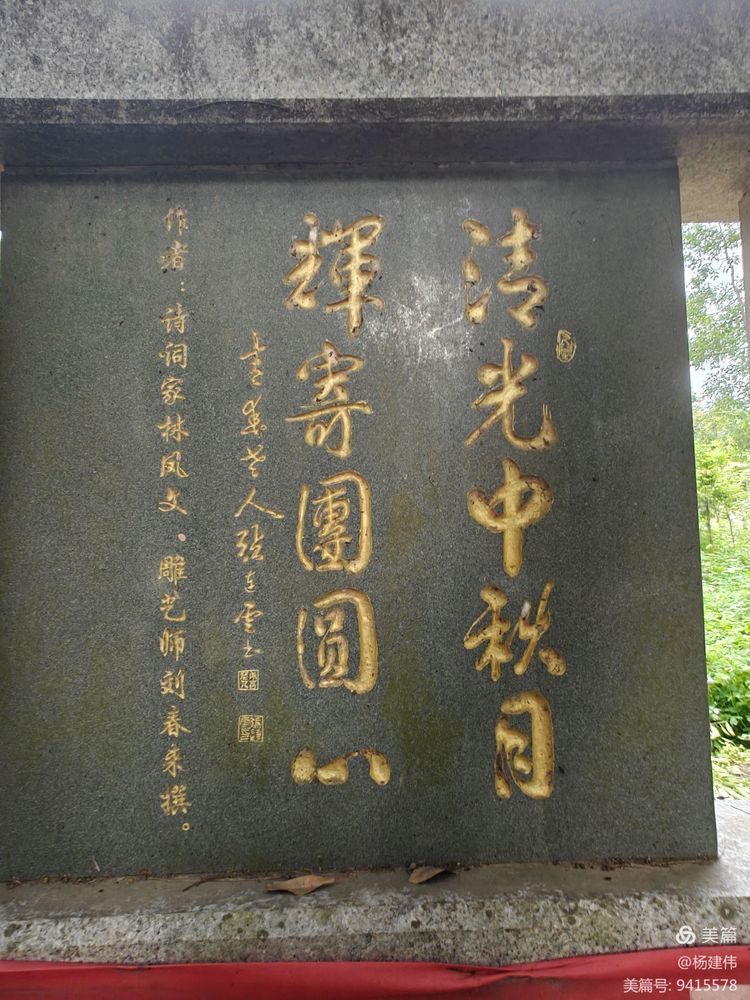 清光中秋月
輝寄團圓心
人张连云书
作者：诗词家林凤文、雕艺师刘春来撰。
美篇
@杨建伟
美篇号: 9415578